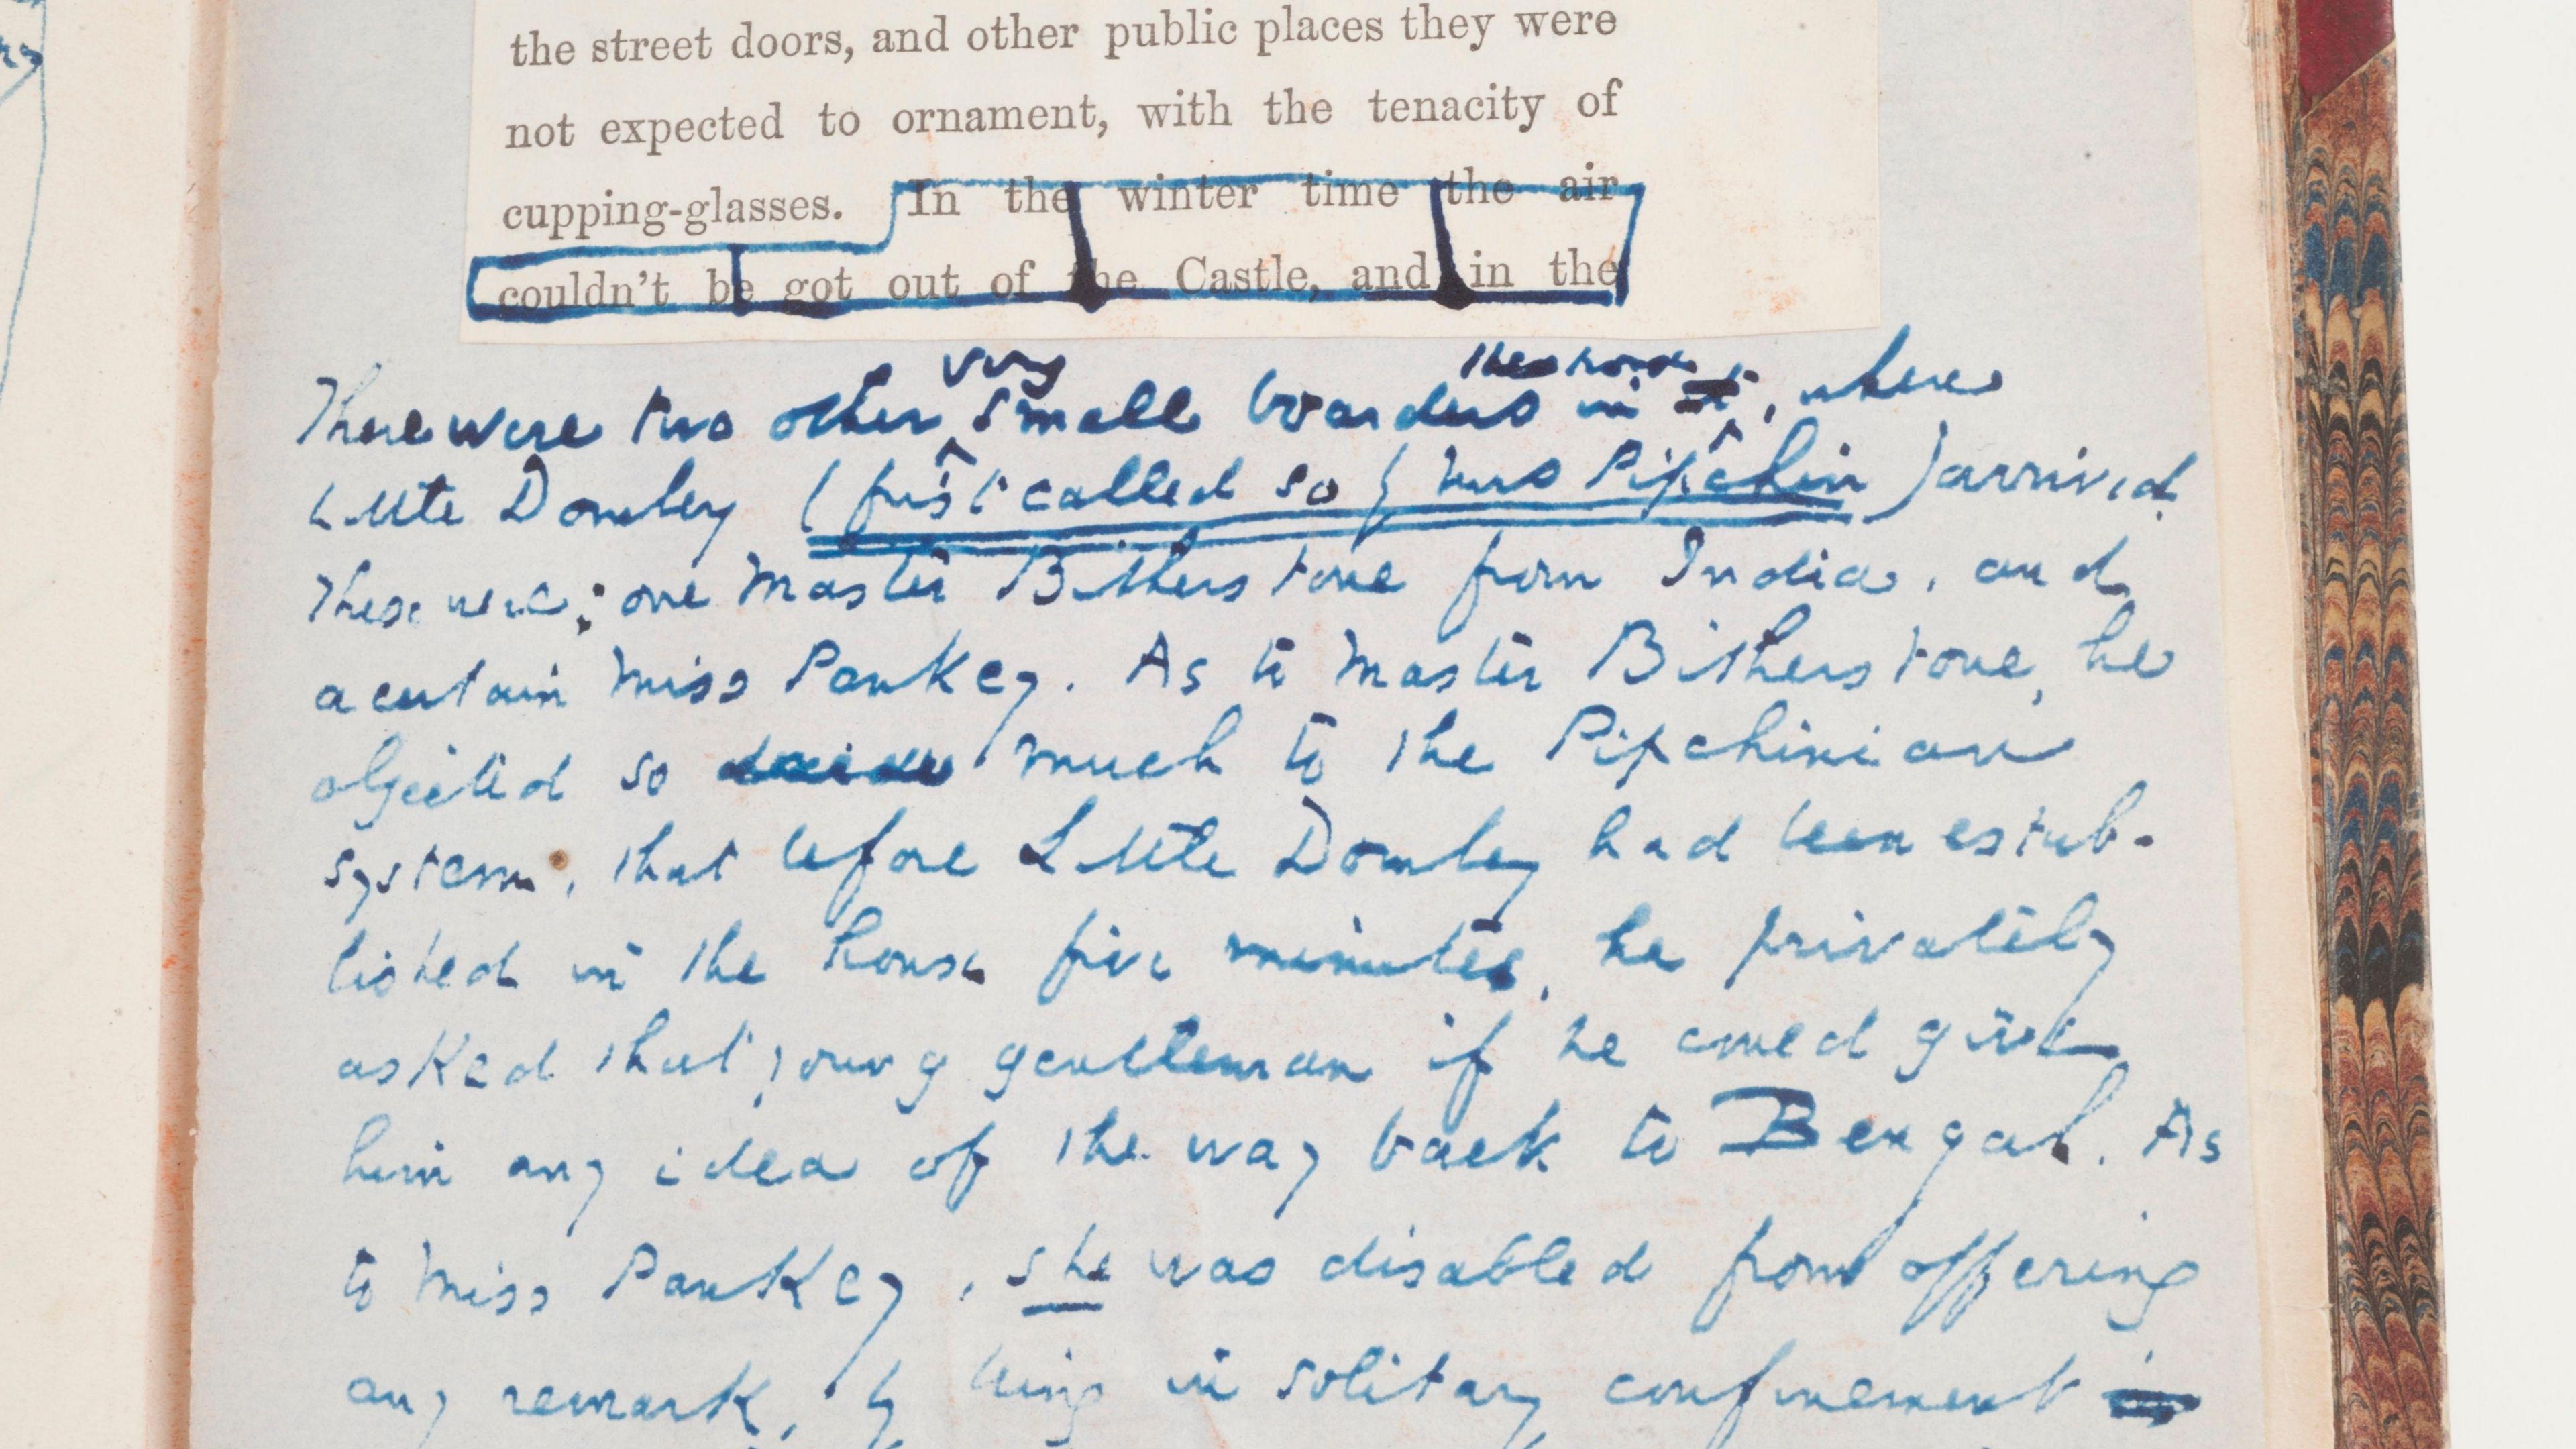 the street doors, and other public places they were
not expected to ornament, with the tenacity of
cupping-glasses. In the winter time the air
couldn't be got out of the Castle, and in the
very the house
There were two other small boarders in it, when
Little Dombey (first called so by Mrs Pipchin) arrived.
These were; one Master Bitherstone from India, and
a certain Miss Pankey. As to Master Bitherstone, he
objected so much to the Pipchinian
system, that before Little Dombey had been estab-
lished in the house five minutes, he privately
asked that young gentleman if he could give
him any idea of the way back to Bengal. As
to Miss Pankey, she was disabled from offering
any remark, by being in solitary confinement